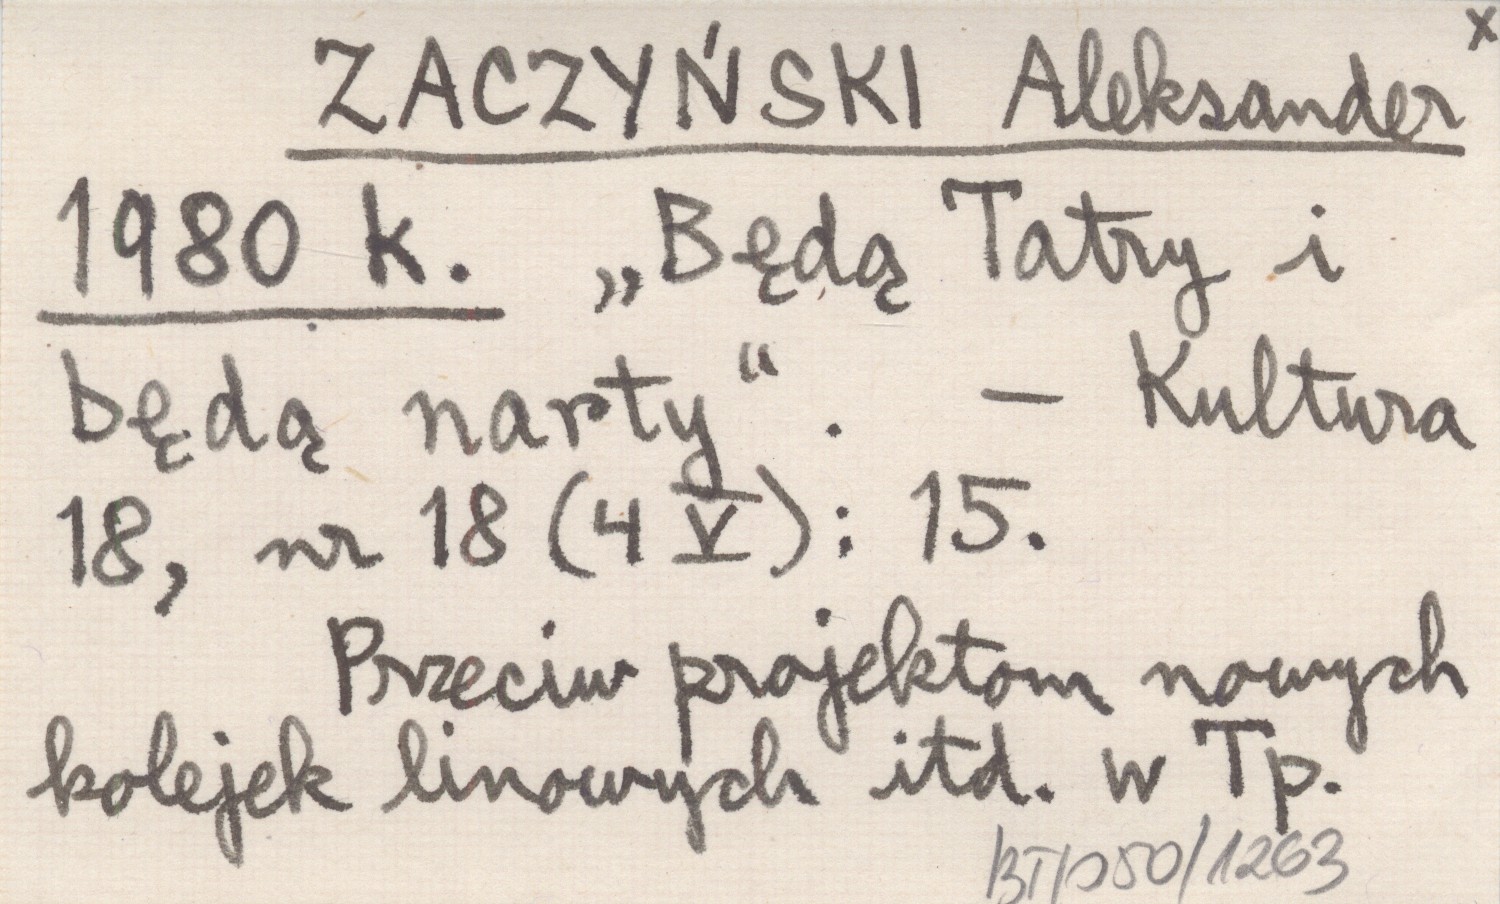 x
ZACZYŃSKI Aleksander
1980 k. „Będą Tatry i
będą narty“. – Kultura
18, nr 18 (4 V): 15.
Przeciw projektom nowych
kolejek linowych itd. w Tp.
/1263